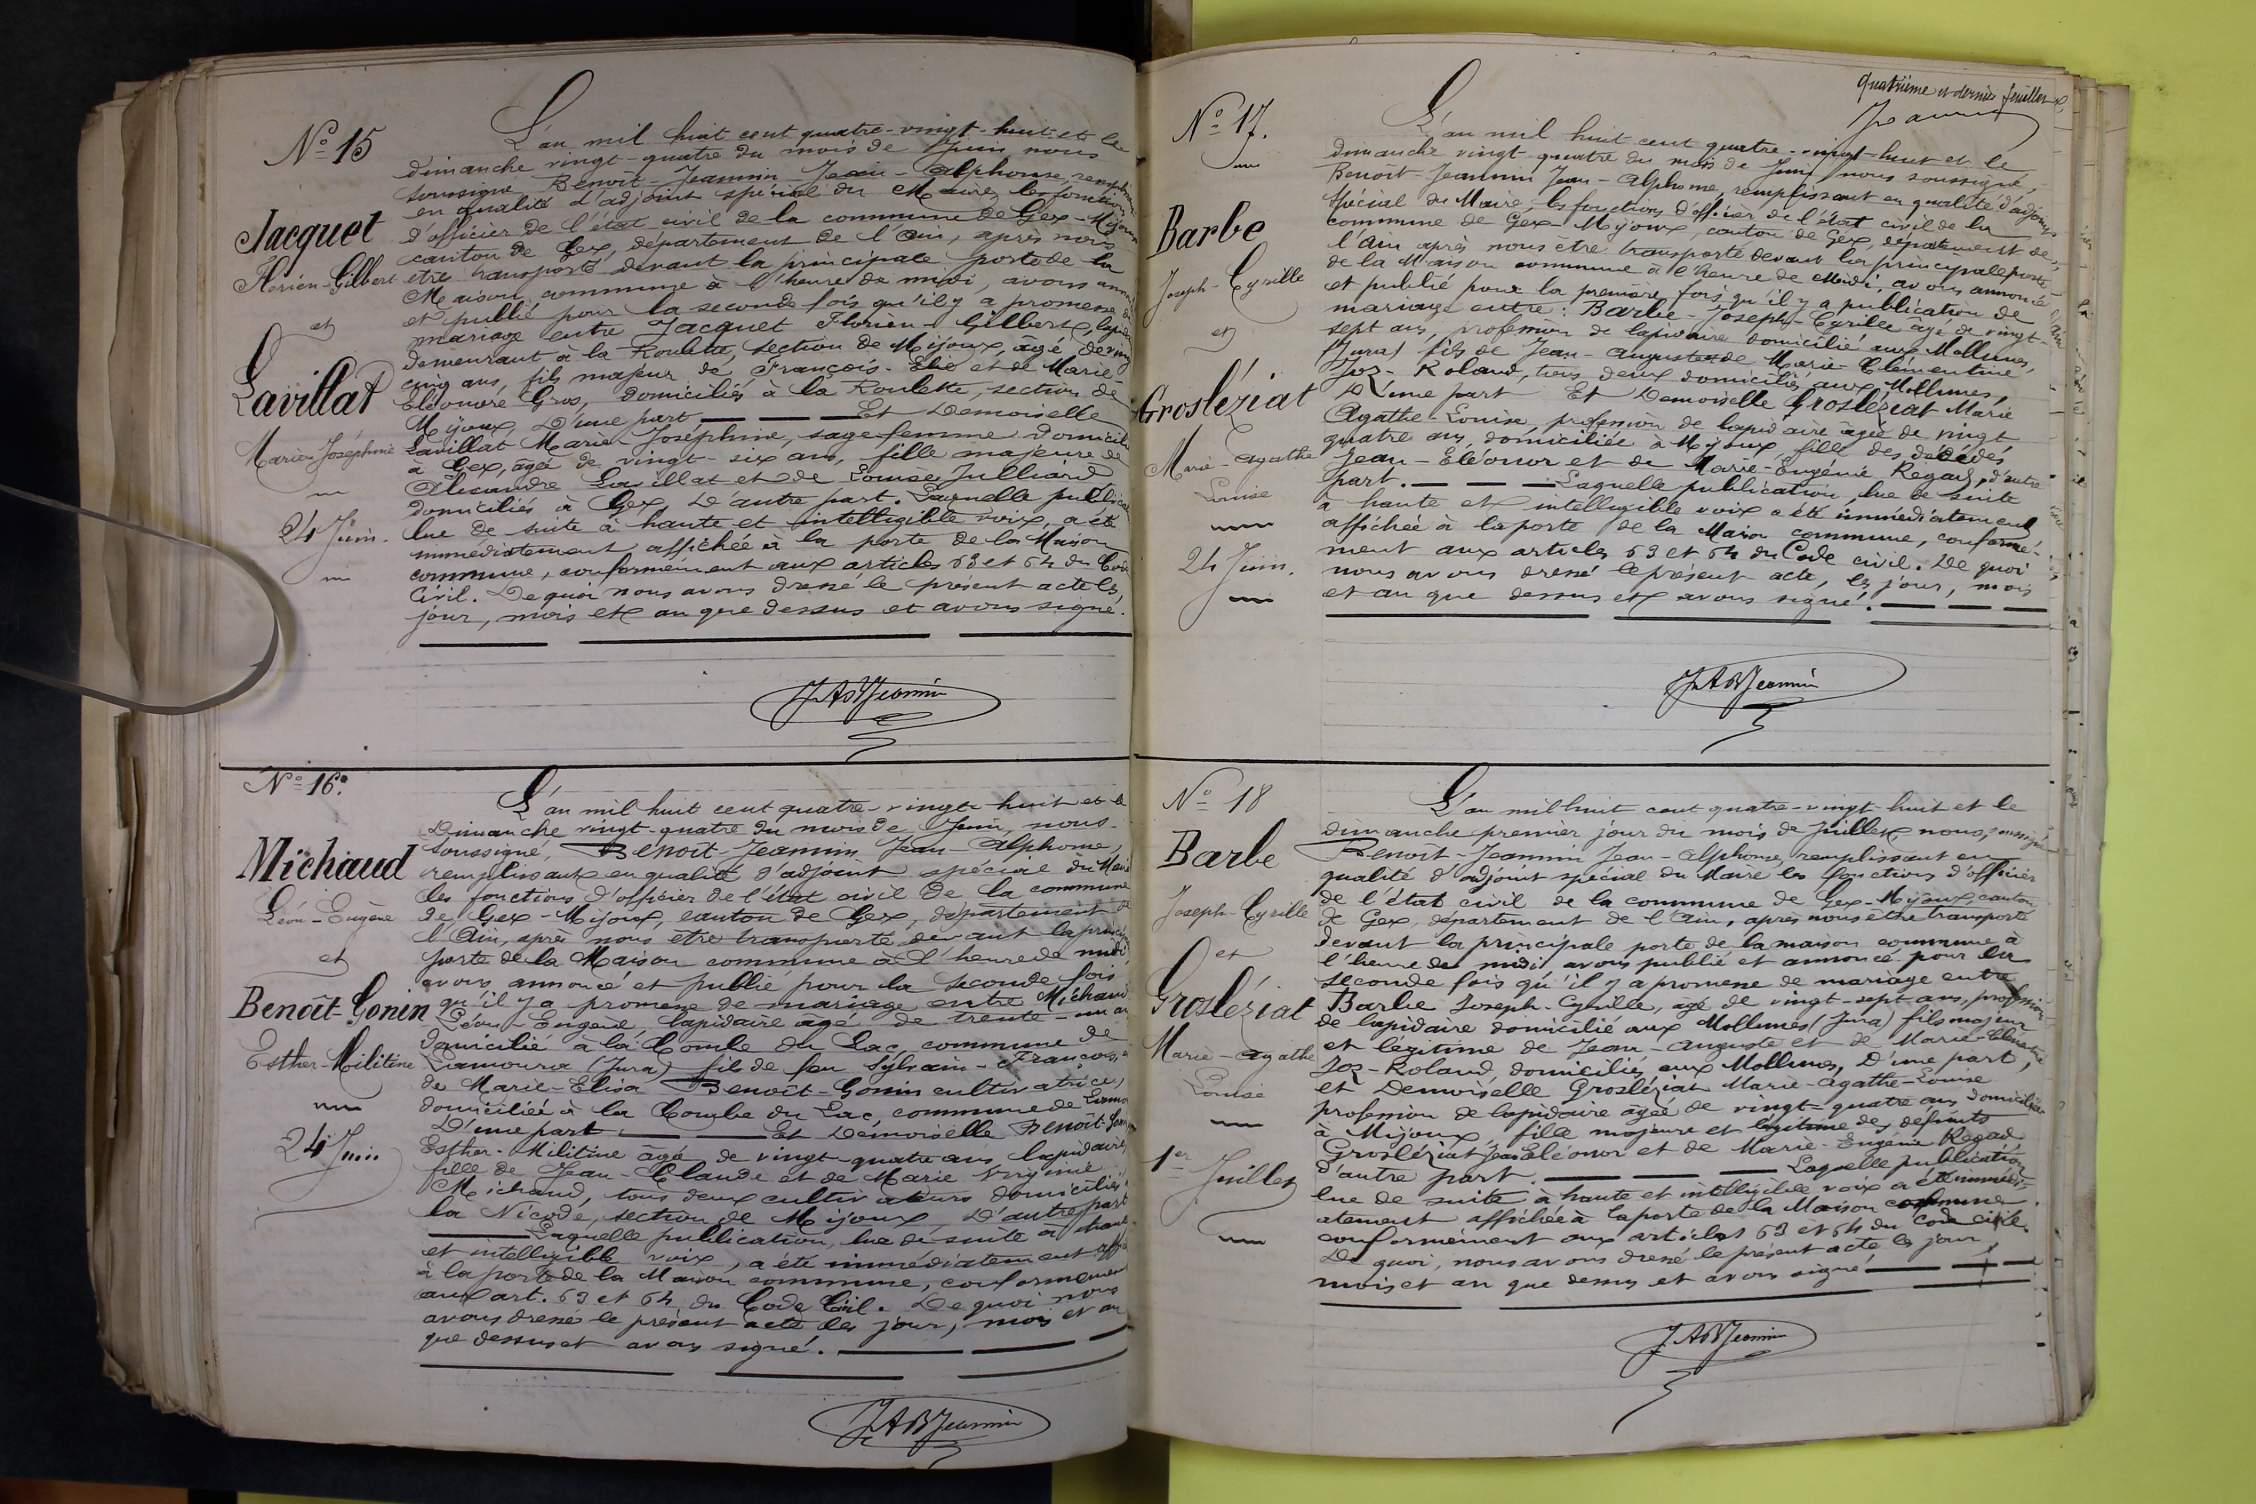 No 15
Jacquet
Florien-Gilbert
et
Lavillat
Marie-Joséphine
24 Juin.
L'an mil huit cent quatre-vingt-huit et le
dimanche vingt-quatre du mois de Juin nous
soussigné, Benoît-Jeannin Jean-Alphonse,
en qualité d'adjoint spécial du Maire, les fonctions
d'officier de l'état civil de la commune de Gex-Mijoux
canton de Gex, département de l'Ain, après nous
être transporté devant la principale porte de la
Maison commune à l'heure de midi, avons
et publié pour la seconde fois qu'il y a promesse de
mariage entre Jacquet Florien-Gilbert,
demeurant à la Roulette, section de Mijoux, âgé de vingt
cinq ans, fils majeur de François-Elie et de Marie-
Eléonore Gros, domiciliés à la Roulette, section de
Mijoux, D'une part Et Demoiselle
Lavillat Marie Joséphine, sage femme domiciliée
à Gex, âgée de vingt-six ans, fille majeure de
Alexandre Lavillat et de Louise Julliard
domiciliés à Gex D'autre part. Laquelle publication
lue de suite à haute et intelligible voix, a été
immédiatement affichée à la porte de la Maison
commune, conformément aux articles 63 et 64 du Code
Civil. De quoi nous avons dressé le présent acte les
jour, mois et an que dessus et avons signé.
JABJeannin
No 16.
Michaud
Léon-Eugène
et
Benoît-Gonin
Esther-Militine
24 Juin
L'an mil huit cent quatre-vingt-huit et le
Dimanche vingt-quatre du mois de Juin, nous
soussigné, Benoît-Jeannin Jean-Alphonse,
remplissant en qualité d'adjoint spécial du Maire
les fonctions d'officier de l'état civil de la commune
de Gex-Mijoux, canton de Gex, département de
l'Ain, après nous être transporté devant la
porte de la Maison commune à l'heure de midi,
avons annoncé et publié pour la seconde fois
qu'il y a promesse de mariage entre Michaud
Léon-Eugène, lapidaire âgé de trente-un ans
domicilié à la Combe du Lac, commune de
Lamoura (Jura) fils de feu Sylvain-François, et
de Marie-Elisa Benoît-Gonin cultivatrice,
domiciliée à la Combe du Lac, commune de
D'une part Et Demoiselle Benoît-Gonin
Esther-Militine âgée de vingt-quatre ans lapidaire,
fille de Jean-Claude et de Marie Virginie
Michaud, tous deux cultivateurs domiciliés
la Nicode, section de Mijoux, D'autre part
Laquelle publication, lue de suite à haute
et intelligible voix, a été immédiatement
à la porte de la Maison commune, conformément
aux art. 63 et 64 du Code Civil. De quoi nous
avons dressé le présent acte les jour, mois et an
que dessus et avons signé.
JABJeannin
Quatrième et dernier feuillet
No 17.
Barbe
Joseph-Cyrille
et
Grosléziat
Marie-Agathe
Louise
24 Juin.
L'an mil huit cent quatre-vingt-huit et le
dimanche vingt-quatre du mois de Juin nous soussigné,
Benoît-Jeannin Jean-Alphonse, remplissant en qualité d'adjoint
spécial du Maire, les fonctions d'officier de l'état civil de la
commune de Gex Mijoux, canton de Gex, département de
l'Ain après nous être transporté devant la principale porte
de la Maison commune à l'heure de Midi, avons annoncé
et publié pour la première fois qu'il y a publication de
mariage entre: Barbe-Joseph-Cyrille âgé de vingt-
sept ans, profession de lapidaire domicilié aux Mollunes,
(Jura) fils de Jean-Auguste et de Marie-Clémentine
Joz-Roland, tous deux domiciliés aux Mollunes,
D'une part Et Demoiselle Grosléziat Marie
Agathe-Louise, profession de lapidaire âgée de vingt
quatre ans, domiciliée à Mijoux fille des décédés
Jean-Eléonor et de Marie-Eugénie Regad, d'autre
part. Laquelle publication lue de suite
à haute et intelligible voix a été immédiatement
affichée à la porte de la Maison commune, conformé-
ment aux articles 63 et 64 du Code civil. De quoi
nous avons dressé le présent acte, les jour, mois
et an que dessus et avons signé.
JABJeannin
No 18
Barbe
Joseph-Cyrille
et
Grosléziat
Marie-Agathe
Louise
1er Juillet
L'an mil huit cent quatre-vingt-huit et le
dimanche premier jour du mois de Juillet nous, soussigné
Benoît-Jeannin Jean-Alphonse remplissant en
qualité d'adjoint spécial du Maire les fonctions d'officier
de l'état civil de la commune de Gex-Mijoux, canton
de Gex, département de l'Ain, après nous être transporté
devant la principale porte de la maison commune à
l'heure de midi avons publié et annoncé pour la
seconde fois qu'il y a promesse de mariage entre
Barbe Joseph-Cyrille, âgé de vingt-sept ans, profession
de lapidaire domicilié aux Mollunes (Jura) fils majeur
et légitime de Jean-Auguste et de Marie-Clémentine
Joz-Roland domiciliés aux Mollunes, D'une part,
et Demoiselle Grosléziat Marie-Agathe-Louise
profession de lapidaire âgée de vingt-quatre ans domiciliée
à Mijoux, fille majeure et légitime des défunts
Grosléziat Jean Eléonor et de Marie-Eugénie Regad
d'autre part. Laquelle publication
lue de suite à haute et intelligible voix a été immédi-
atement affichée à la porte de la Maison commune
conformément aux articles 63 et 64 du Code civil.
De quoi, nous avons dressé le présent acte les jour,
mois et an que dessus et avons signé
JABJeannin